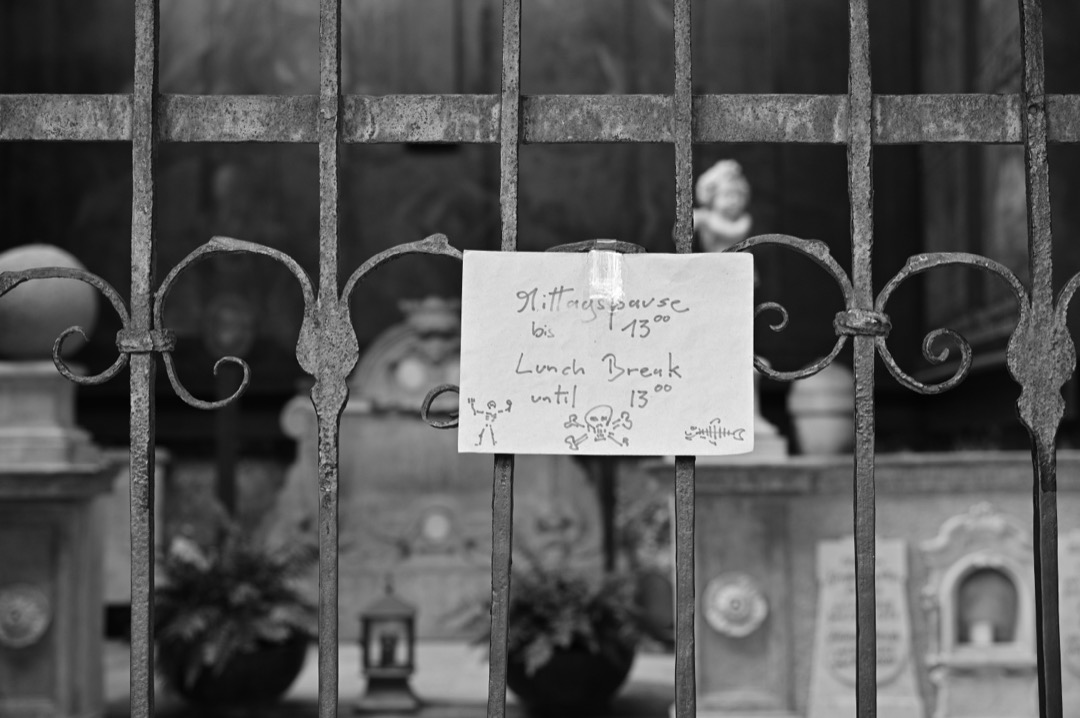 Mittagspause
bis 13⁰⁰
Lunch Break
until 13⁰⁰